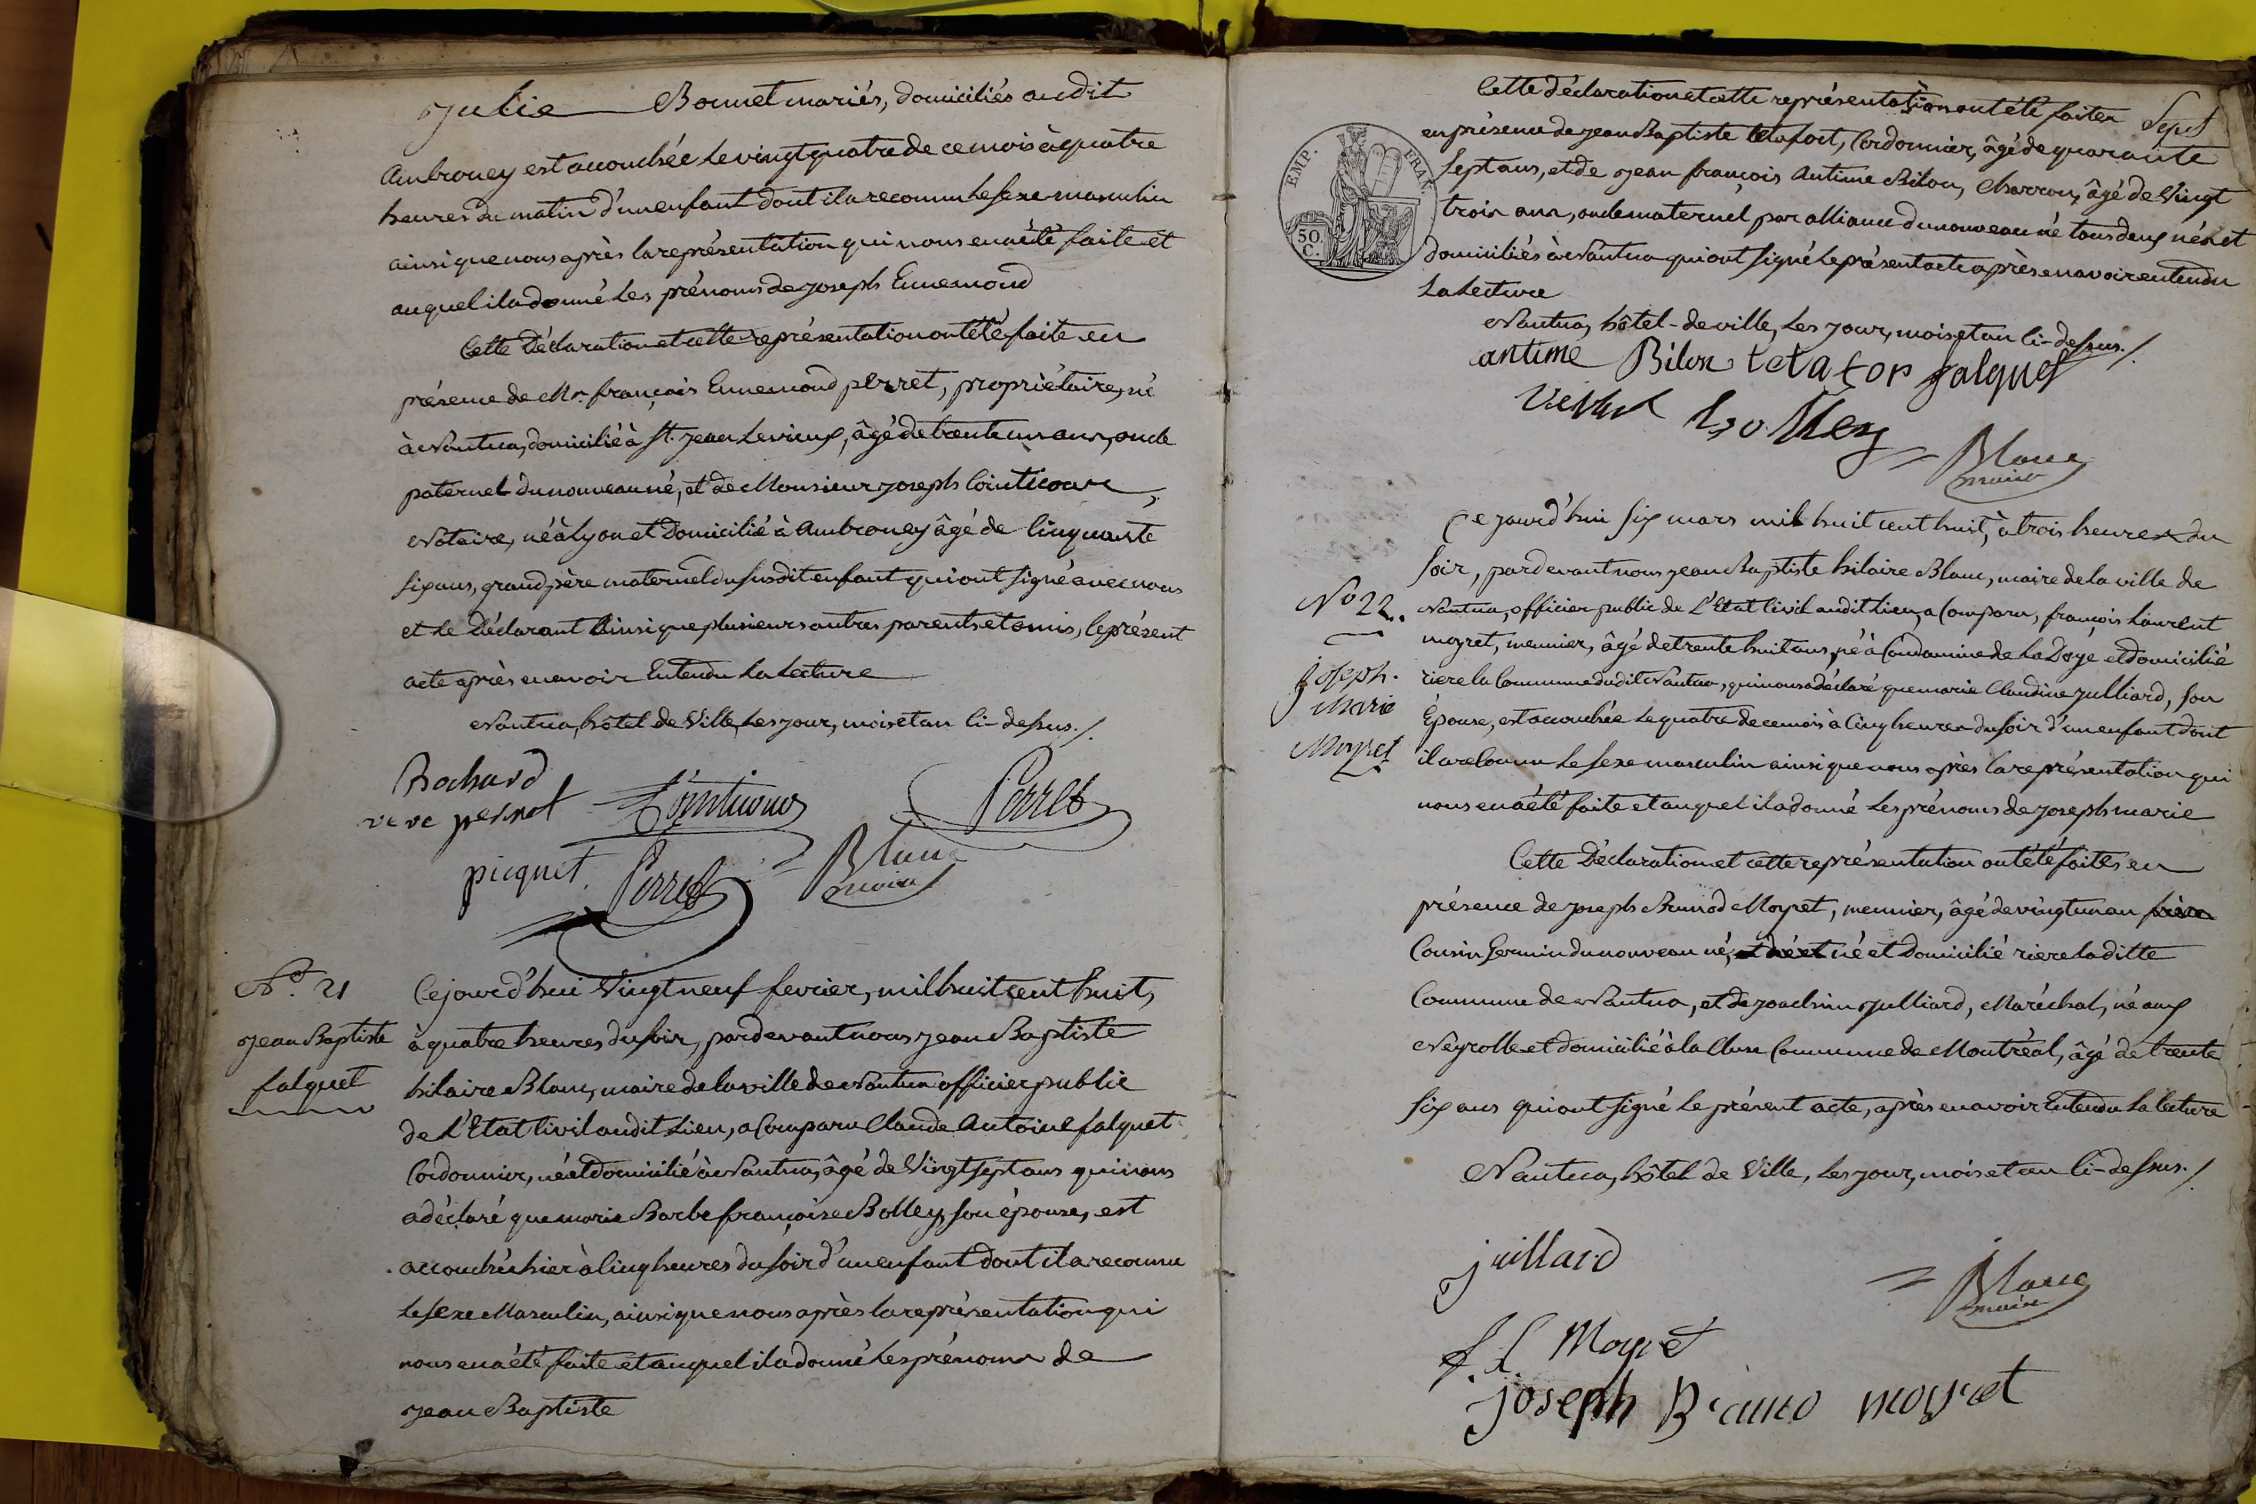 Julie Bonnet mariés, domiciliés audit
Ambronay est accouchée le vingt quatre de ce mois à quatre
heures du matin d'un enfant dont il a reconnu le sexe masculin
ainsi que nous après la représentation qui nous en a été faite et
auquel il a donné les prénoms de joseph Ennemond
Cette Déclaration et cette représentation ont été faite en
présence de Mr. françois Ennemond perret, propriétaire, né
à Nantua, domicilié à St. jean le vieux, âgé de trente un ans, oncle
paternel du nouveau né, et de Monsieur joseph Cointicour,
Notaire, né à Lyon et Domicilié à Ambronay âgé de Cinquante
six ans, grand père maternel du susdit enfant qui ont signé avec nous
et le Déclarant Ainsi que plusieurs autres parents et amis, le présent
acte après en avoir Entendu la Lecture
Nantua, hôtel de Ville, les jour, mois et an Ci-dessus./.
Rochard
ve ve Cointicour Perret
picquet Perret Blanc
maire
No. 21
jean Baptiste
falquet
Cejourd'hui Vingt neuf fevrier, mil huit cent huit,
à quatre heures du soir, pardevant nous jean Baptiste
hilaire Blanc, maire de la ville de Nantua officier public
de L'Etat Civil audit Lieu, a Comparu Claude Antoine falquet
Cordonnier, né et domicilié à Nantua, âgé de Vingt sept ans qui nous
a déclaré que marie Barbe françoise Bolley, son épouse, est
accouchée hier à Cinq heures du soir d'un enfant dont il a reconnu
le sexe Masculin, ainsi que nous après la représentation qui
nous en a été faite et auquel il a donné les prénoms de
jean Baptiste
Cette Déclaration et cette représentation ont été faites
Sept
EMP. FRAN.
50
C.
en présence de jean Baptiste tetafort, Cordonnier, âgé de quarante
Sept ans, et de jean françois Antime Bilon, Charron, âgé de Vingt
trois ans, oncle maternel par alliance du nouveau né tous deux nés et
domiciliés à Nantua qui ont signé le présent acte après en avoir entendu
la Lecture
Nantua, hôtel-de ville, les jour, mois et an Ci-dessus./.
antime Bilon tetafor falquet
Bolley
Blanc
maire
Cejourd'hui six mars mil huit cent huit, à trois heures du
soir, pardevant nous jean Baptiste hilaire Blanc, maire de la ville de
No 22.
joseph.
Marie
Moyret
Nantua, officier public de L'Etat Civil audit Lieu, a Comparu, françois Laurent
moyret, meunier, âgé de trente huit ans, né à Condamine de la Doye et domicilié
riere la Commune dudit Nantua, qui nous a déclaré que marie Claudine julliard, son
Épouse, est accouchée le quatre de ce mois à Cinq heures du soir d'un enfant dont
il a reconnu le sexe masculin ainsi que nous après la représentation qui
nous en a été faite et auquel il a donné les prénoms de joseph marie
Cette Déclaration et cette représentation ont été faites en
présence de joseph Brunod Moyret, meunier, âgé de vingt un an
Cousin Germin du nouveau né, né et Domicilié riere la ditte
Commune de Nantua, et de joachim julliard, Maréchal, né aux
Neyrolle et domicilié à la Cluse Commune de Montréal, âgé de trente
six ans qui ont signé le présent acte, après en avoir Entendu la lecture
Nantua, hôtel de Ville, les jour, mois et an Ci-dessus./
juillard
Blanc
maire
f. L. Moyret
joseph Bruno moyret